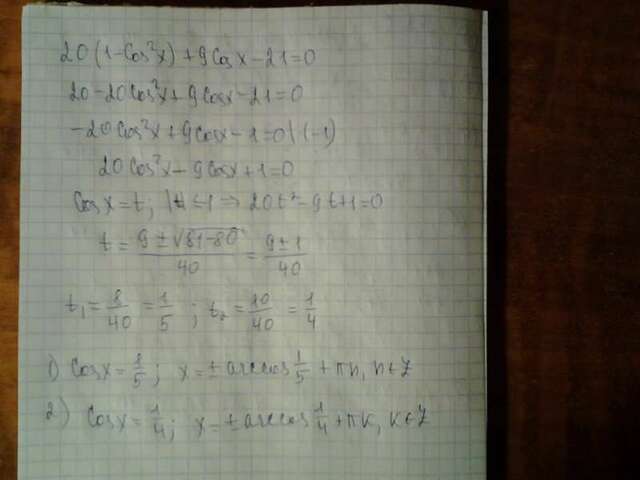 20(1-cos²x)+9cosx-21=0
20-20cos²x+9cosx-21=0
-20cos²x+9cosx-1=0|(-1)
20cos²x-9cosx+1=0
cosx=t; |t|≤1 ⇒ 20t²-9t+1=0
t = (9±√(81-80))/40 = (9±1)/40
t₁ = 8/40 = 1/5 ; t₂ = 10/40 = 1/4
1) cosx = 1/5 ; x = ±arccos 1/5 + πn, n∈Z
2) cosx = 1/4 ; x = ±arccos 1/4 + πk, k∈Z